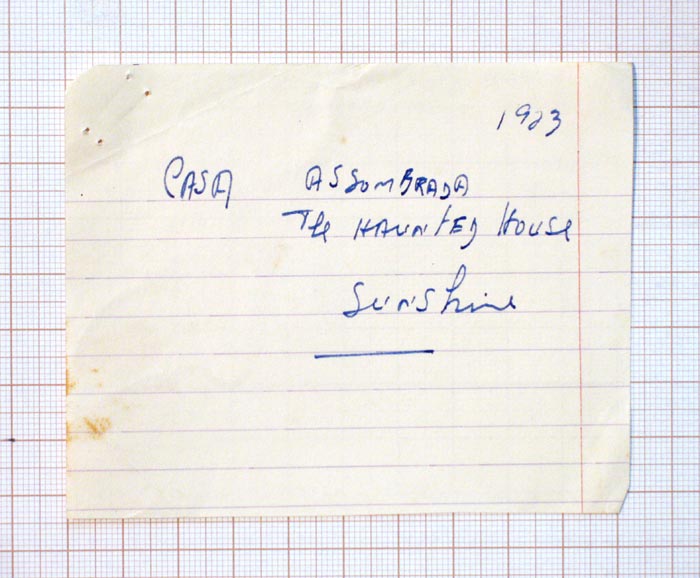 1923
CASA ASSOMBRADA
The HAUNTED House
Sunshine